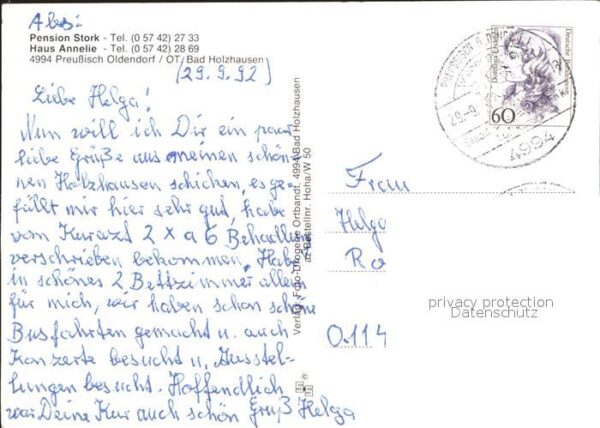 Abs:
Pension Stork - Tel. (0 57 42) 27 33
Haus Annelie - Tel. (0 57 42) 28 69
4994 Preußisch Oldendorf / OT. Bad Holzhausen
(29.9.92)
Liebe Helga!
Nun will ich Dir ein paar
liebe Grüße aus meinen schö-
nen Holzhausen schicken, es ge-
fällt mir hier sehr gut, habe
vom Kurarzt 2 x a 6 Behadlung
verschrieben bekommen. Habe
in schönes 2 Bettzimmer allein
für mich, wir haben schon schöne
Busfahrten gemacht u. auch
Konzerte besucht u. Ausstel-
lungen besucht. Hoffendlich
war Deine Kur auch schön Gruß Helga
Verlag: Foto-Drogerie Ortbandt, 4994 Bad Holzhausen
Bestellnr. Hoha/W 50
Deutsche Bundespost
60
4994
Frau
Helga
Ro
0114
privacy protection
Datenschutz